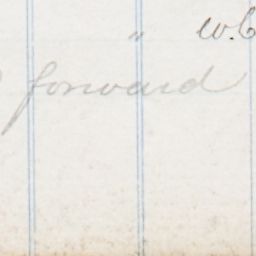 " W.C
forward